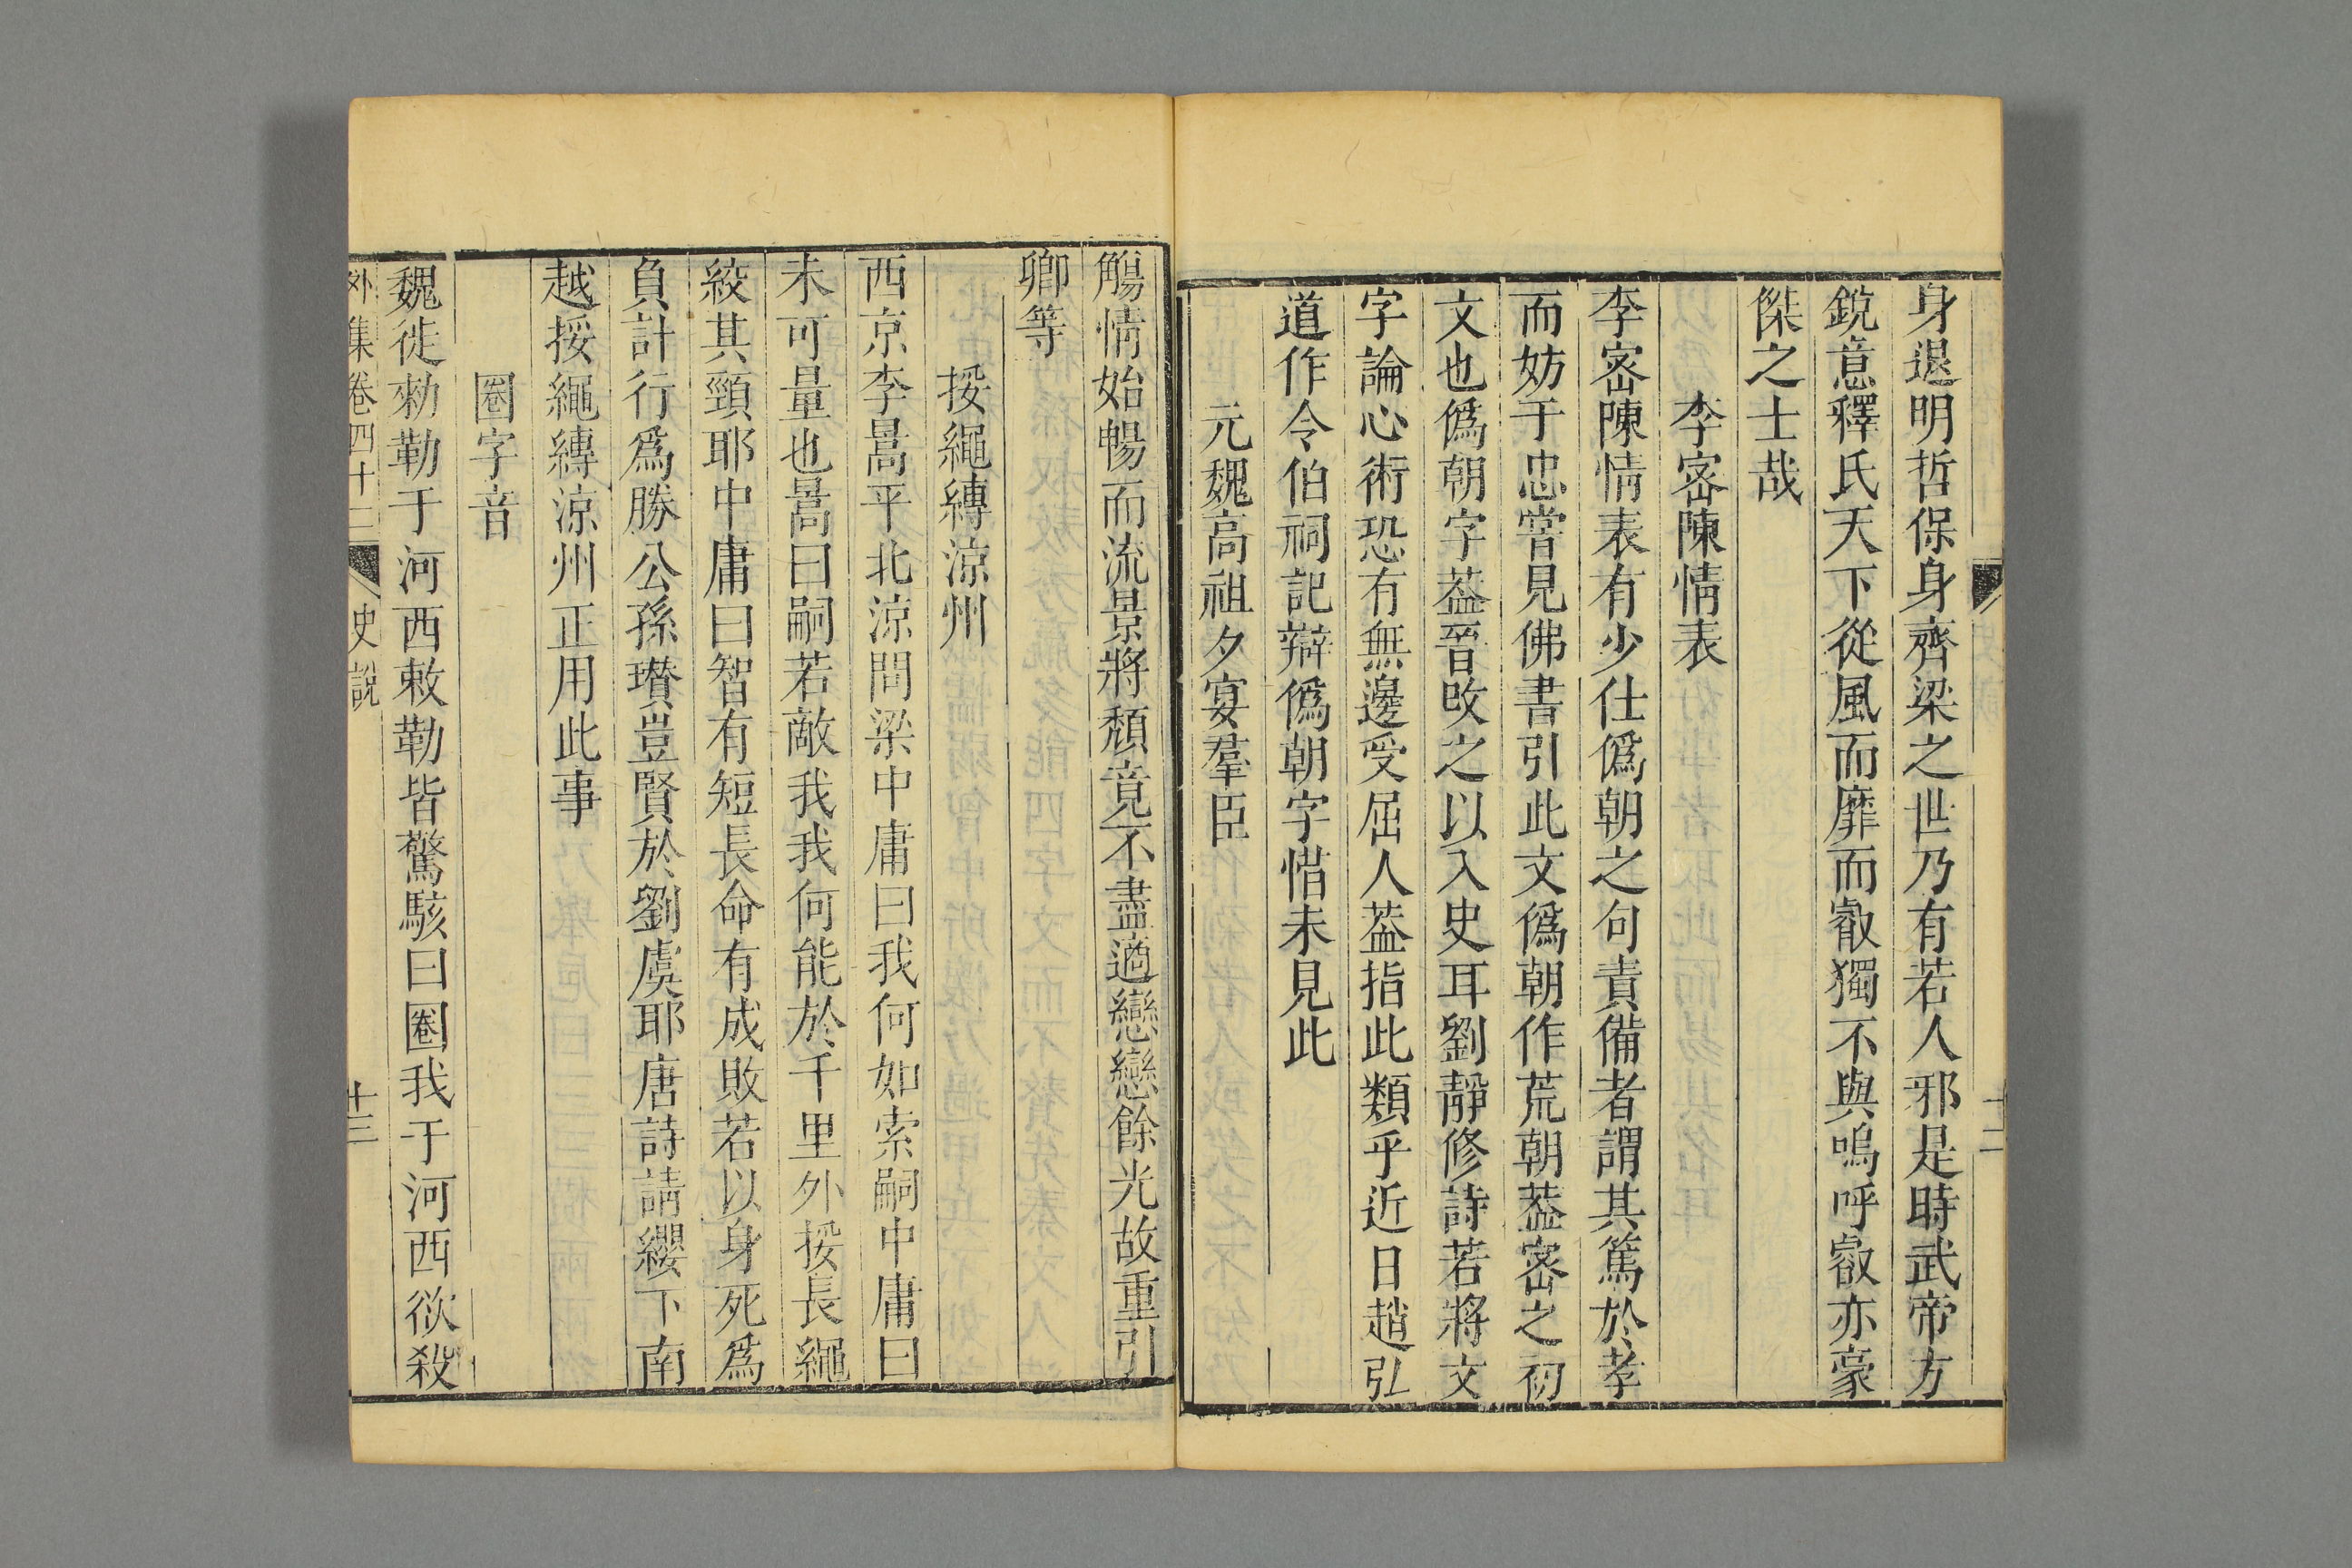 身退明哲保身齊梁之世乃有若人邪是時武帝方
銳意釋氏天下從風而靡而叡獨不與嗚呼叡亦豪
傑之士哉
李宻陳情表
李宻陳情表有少仕僞朝之句責備者謂其篤於孝
而妨于忠嘗見佛書引此文僞朝作荒朝葢宻之初
文也僞朝字葢晉攺之以入史耳劉靜修詩若將文
字論心術恐有無邊受屈人葢指此類乎近日趙弘
道作令伯祠記辯僞朝字惜未見此
元魏高祖夕宴羣臣
觴情始暢而流景將頹竟不盡適戀戀餘光故重引
卿等
挼繩縳涼州
西京李暠平北涼問梁中庸曰我何如索嗣中庸曰
未可量也暠曰嗣若敵我我何能於千里外挼長繩
絞其頸耶中庸曰智有短長命有成敗若以身死爲
負計行爲勝公孫瓚豈賢於劉虞耶唐詩請纓下南
越挼繩縳涼州正用此事
圈字音
魏徙勑勒于河西敕勒皆驚駭曰圈我于河西欲殺
外集卷四十二 史說 十三
十二